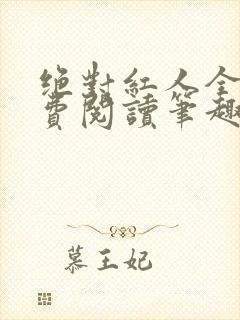 绝對紅人全
費閱讀筆趣
慕王妃